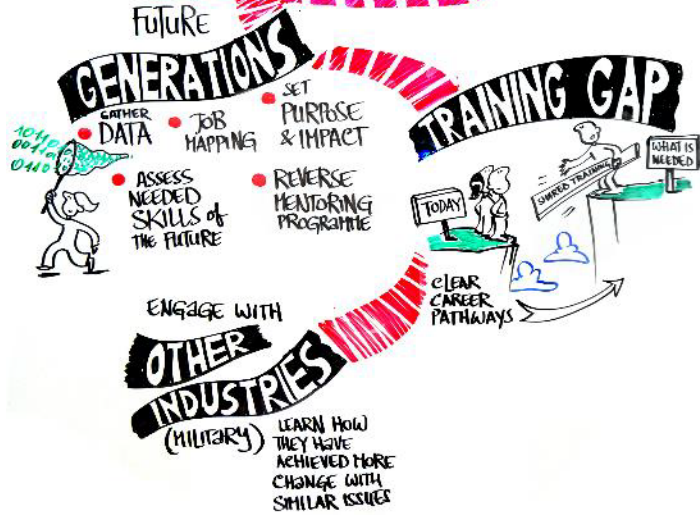 FUTURE
GENERATIONS
GATHER
DATA
JOB
MAPPING
SET
PURPOSE
& IMPACT
ASSESS
NEEDED
SKILLS of
THE FUTURE
REVERSE
MENTORING
PROGRAMME
10110
00110
0110
TRAINING GAP
TODAY
SHARED TRAINING
WHAT IS
NEEDED
CLEAR
CAREER
PATHWAYS
ENGAGE WITH
OTHER
INDUSTRIES
(MILITARY)
LEARN HOW
THEY HAVE
ACHIEVED MORE
CHANGE WITH
SIMILAR ISSUES